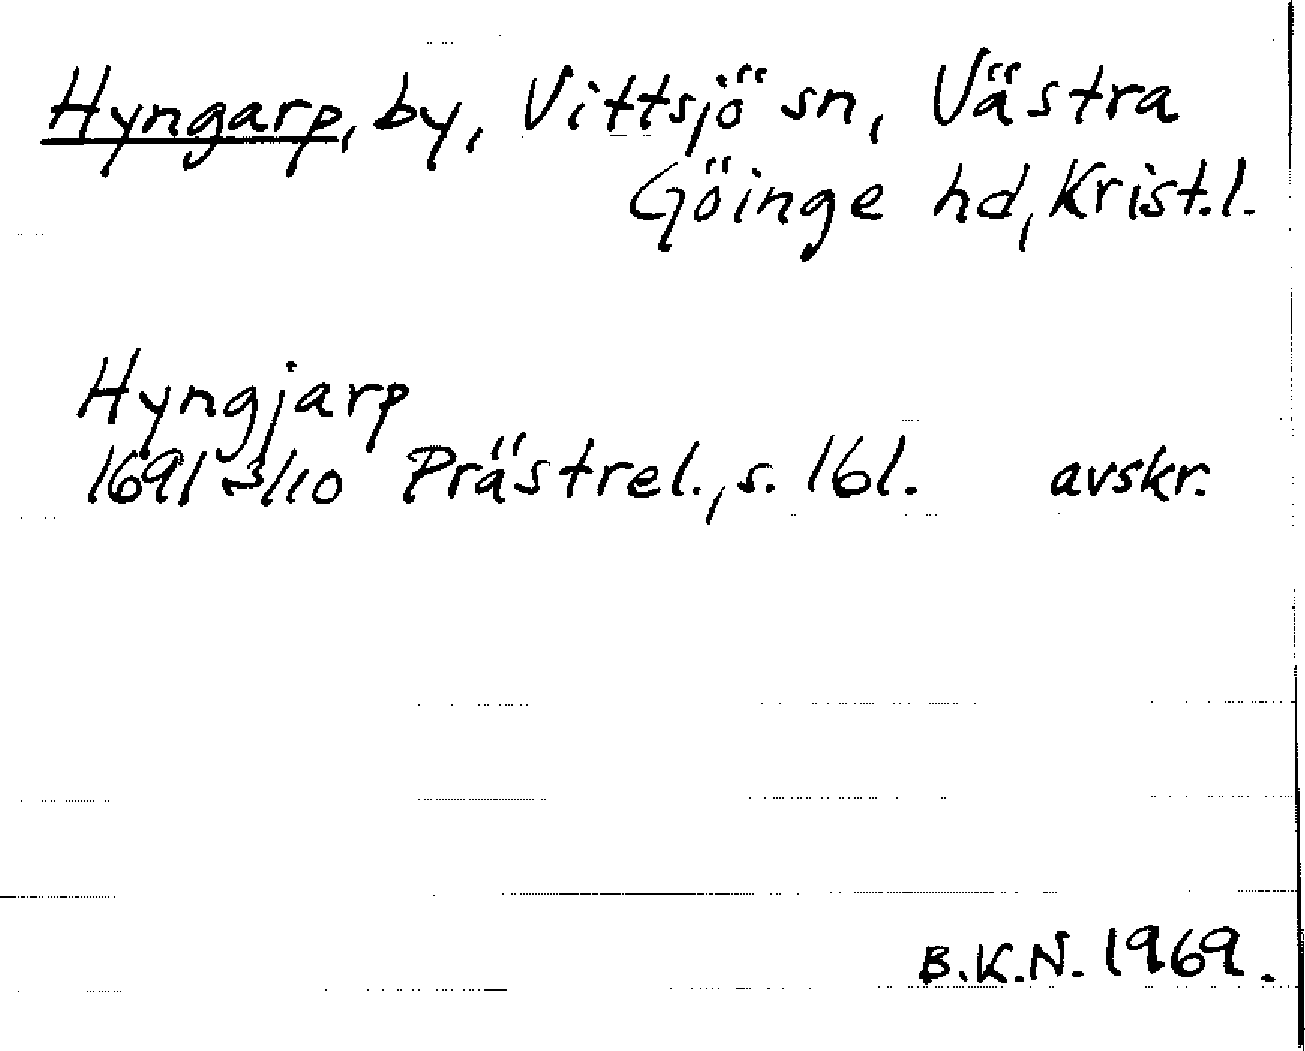 Hyngarp, by, Vittsjö sn, Västra
Göinge hd, Krist.l.
Hyngjarp
1691 3/10 Prästrel., s. 161. avskr.
B.K.N. 1969.